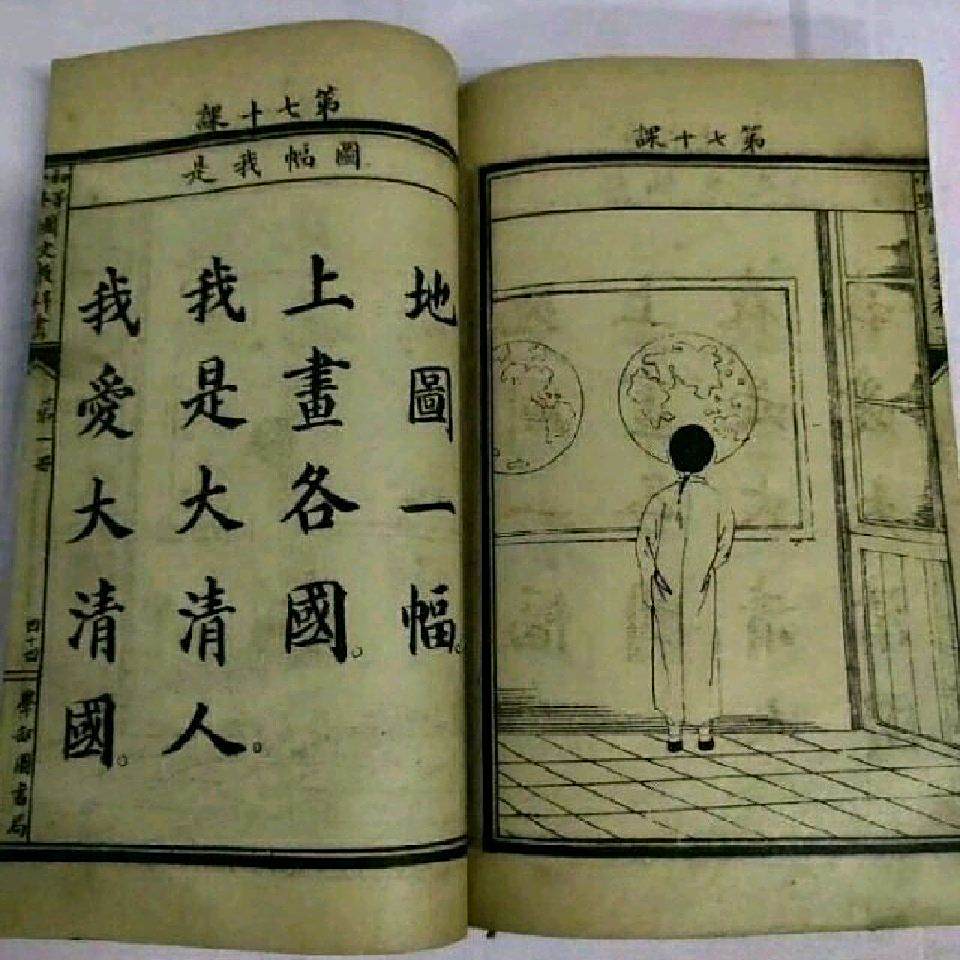 第七十課
第七十課
圖幅我是
地圖一幅。
上畫各國。
我是大清人。
我愛大清國。
國文教科書
第一冊
圖書局